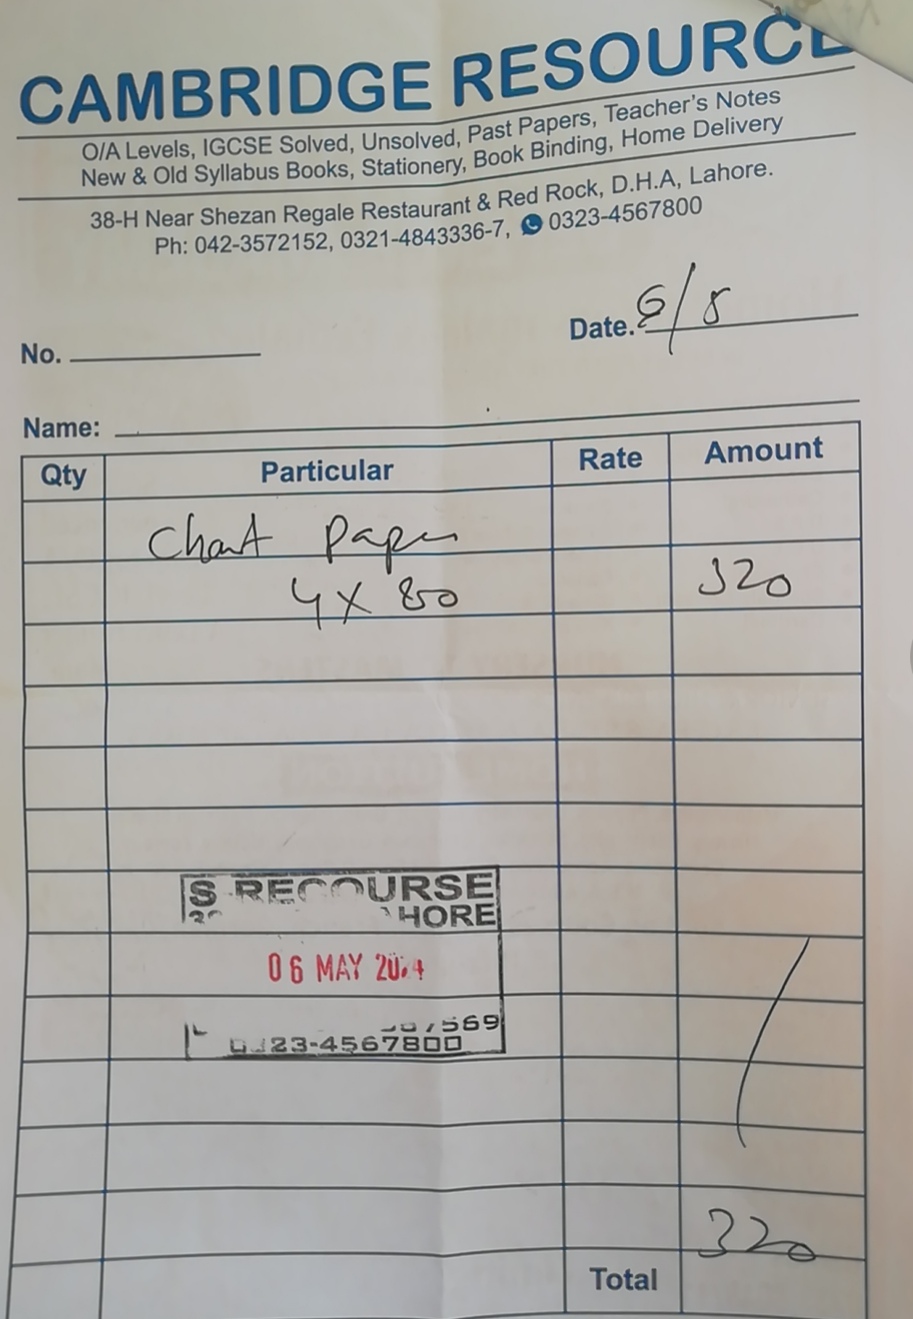 CAMBRIDGE RESOURCE
O/A Levels, IGCSE Solved, Unsolved, Past Papers, Teacher's Notes
New & Old Syllabus Books, Stationery, Book Binding, Home Delivery
38-H Near Shezan Regale Restaurant & Red Rock, D.H.A, Lahore.
Ph: 042-3572152, 0321-4843336-7, 0323-4567800
Date. 6/5
No.
Name:
Qty Particular Rate Amount
Chart Paper
4 X 80 320
S RECOURSE
HORE
06 MAY
7569
23-4567800
320
Total